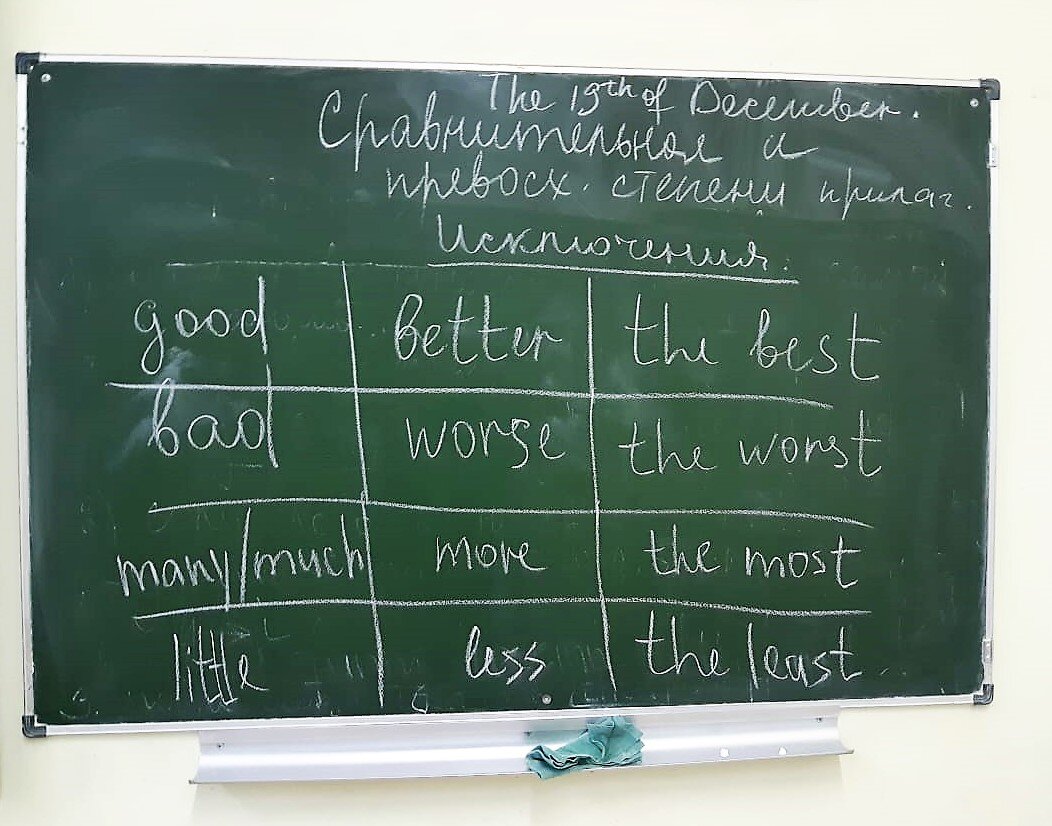 The 19th of December.
Сравнительная и
превосх. степени прилаг.
Исключения.
good better the best
bad worse the worst
many/much more the most
little less the least